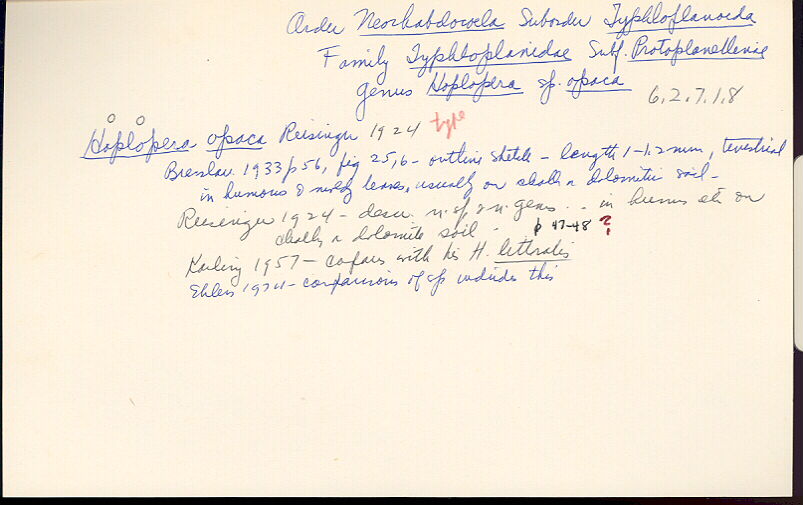 Order Neorhabdocoela Suborder Typhloplanoida
Family Typhloplanidae Subf. Protoplanellinae
genus Hoplopera sp. opaca
6.2.7.1.8
Hoplopera opaca Reisinger 1924 type
Bresslau 1933 p 56, fig 25,6 - outline sketch - length 1-1.2 mm, terestrial
in humous & moldy leaves, usually on chalk or dolomitic soil -
Reisinger 1924 - descr. n. sp & n. genus - - in humus etc on
chalky or dolomite soil - p 47-48 ?
Karling 1957 - compares with his H. littoralis
Ehlers 1974 - comparisons of sp includes this